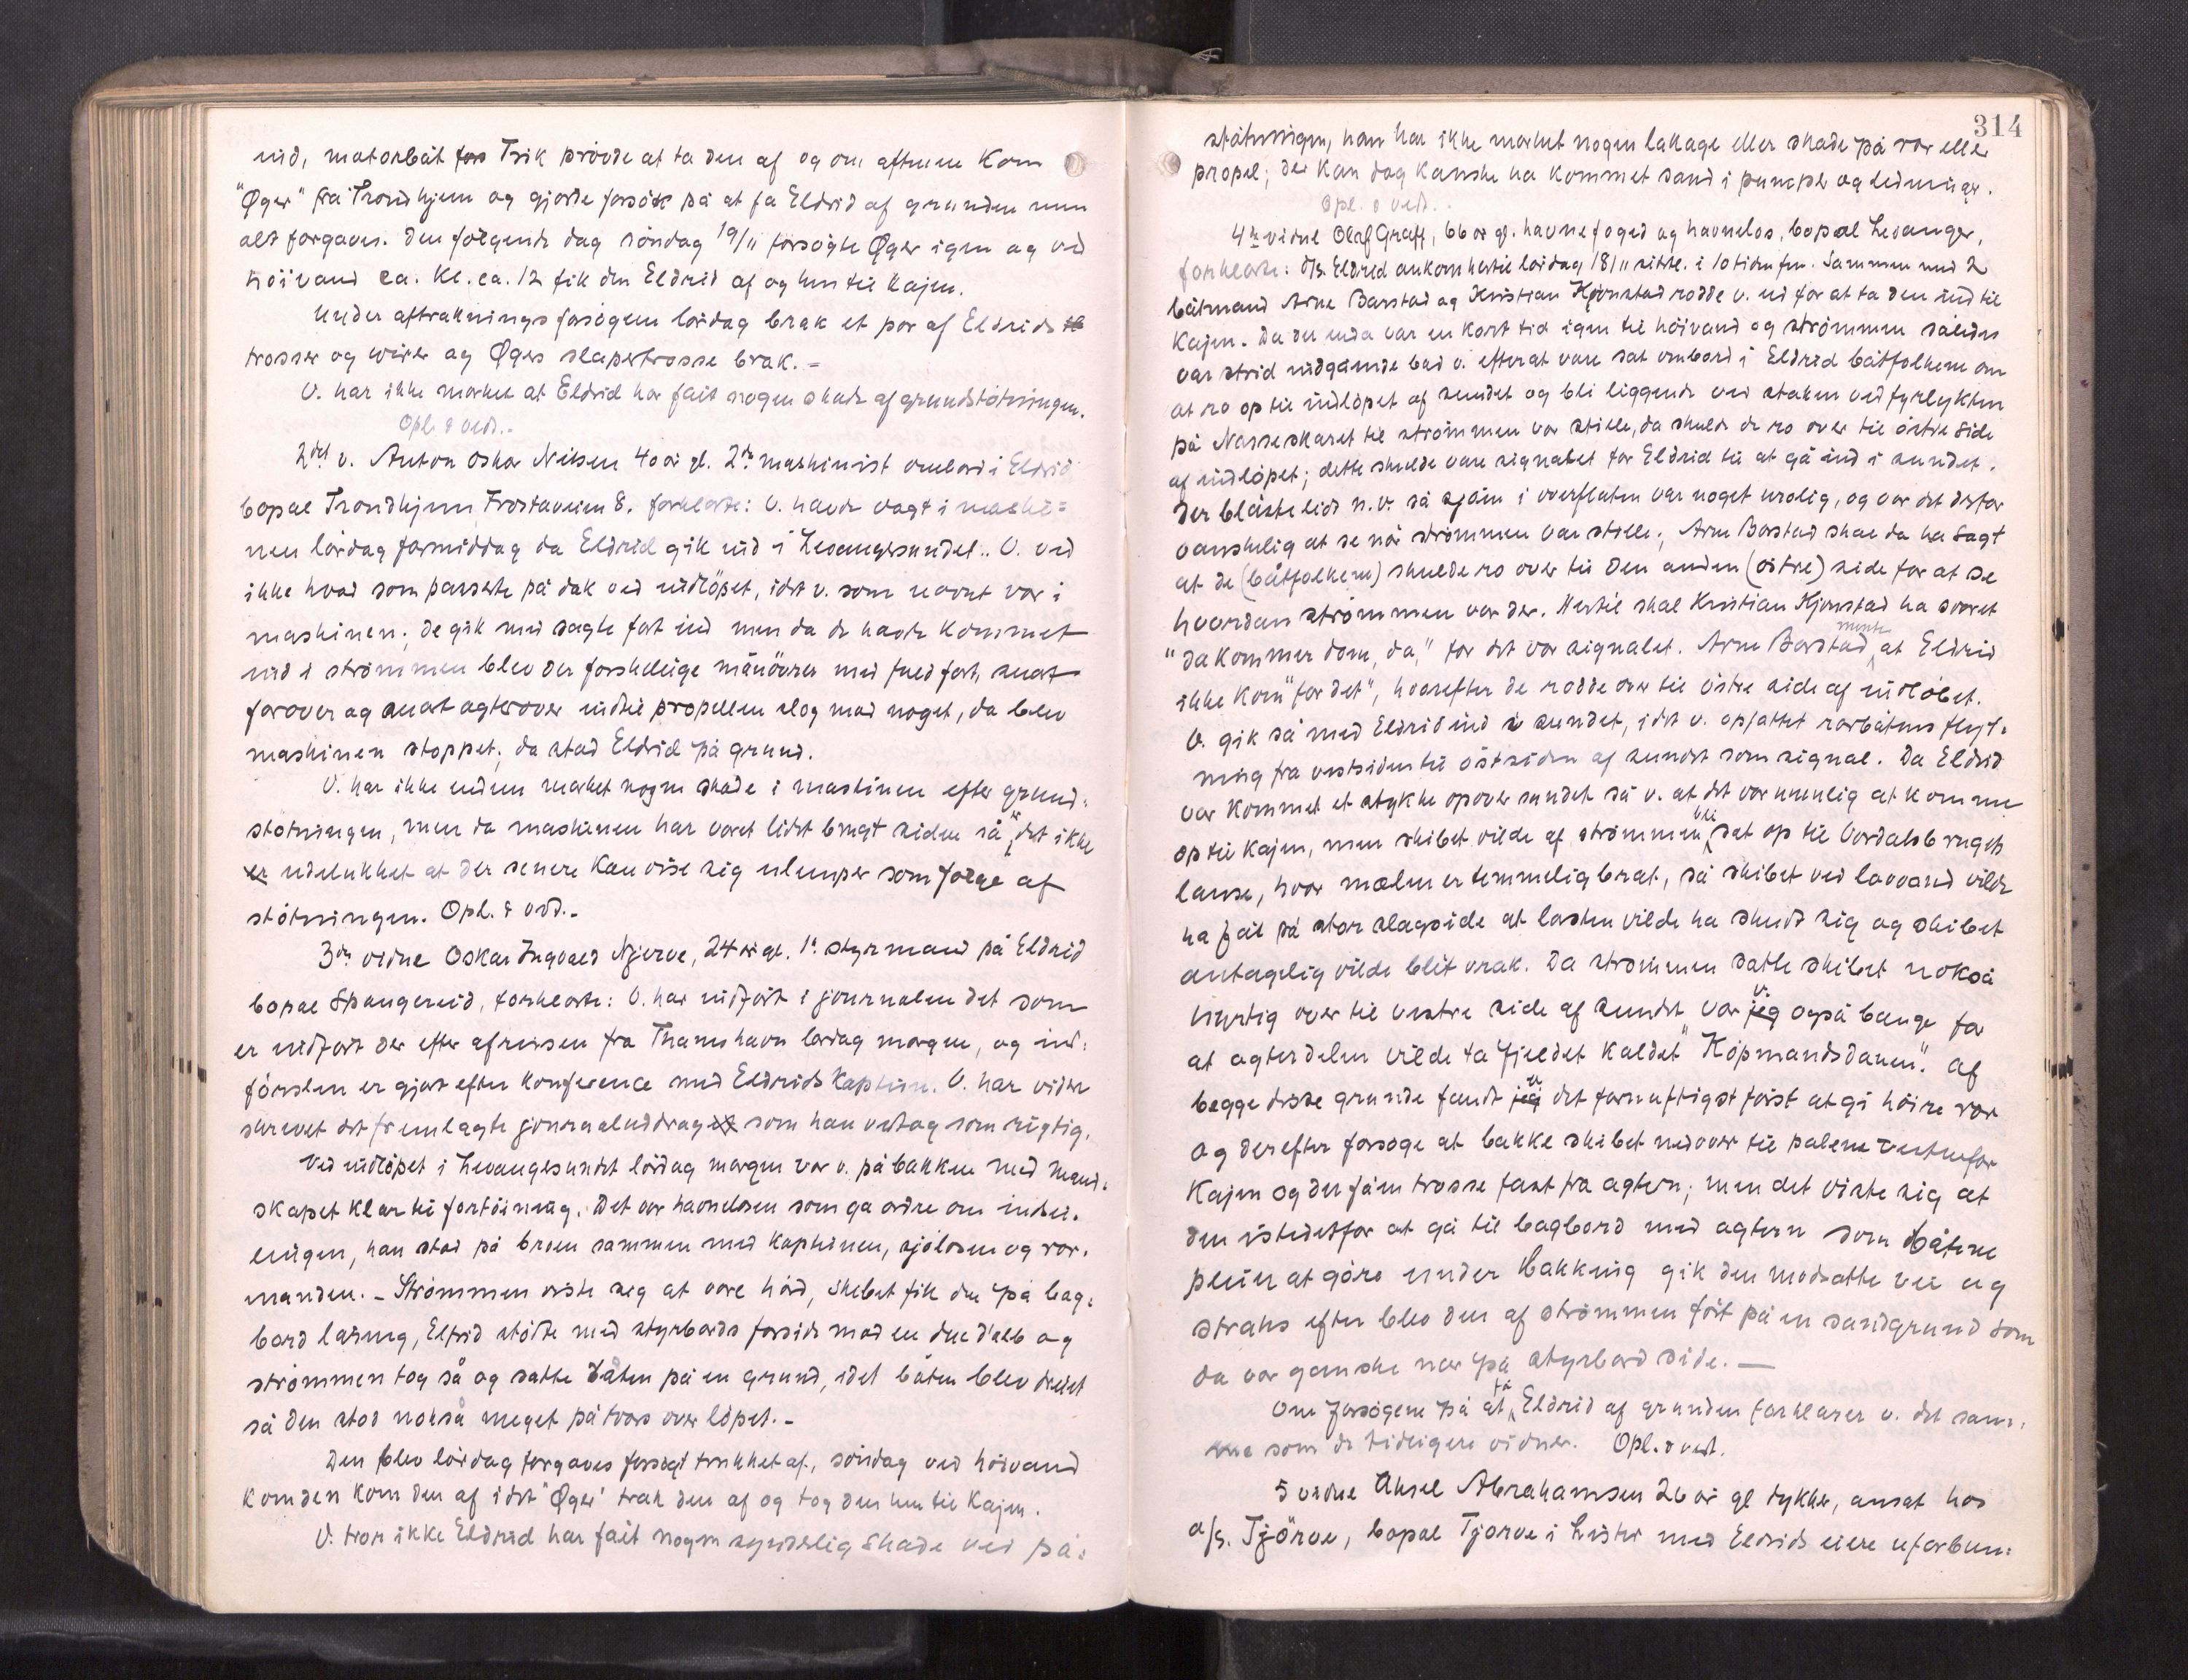 ind, motorbåt Trik prövde at ta den af og om aftenen kom
"Øger" fra Trondhjem og gjorde forsök på at få Eldrid af grunden men
alt forgjæves. Den følgende dag söndag 19/11 forsögte Øger igen og ved
höivand ca. kl. ca. 12 fik den Eldrid af og hen til Kajen.
Under aftrækningsforsögene lördag brak et par af Eldrids
trosser og wirer og Øgers slæpertrosse brak. -
V. har ikke merket at Eldrid har fåit nogen skade af grundstötningen.
Opl. & vedt. -
2det v. Anton Oskar Nilsen 40 år gl. 2den maskinist ombord i Eldrid
bopæl Trondhjem Frostaveien 8. forklarte: V. havde vagt i maski=
nen lördag formiddag da Eldrid gik ind i Levangersundet.. V. ved
ikke hvad som passerte på dæk ved indlöpet, idet v. som nævnt var i
maskinen; de gik med sagte fart ind men da de havde kommet
ind i strömmen blev der forskellige manövrer med fuld fart, snart
forover og snart agterover indtil propellen slog mod noget, da blev
maskinen stoppet; da stod Eldrid på grund.
V. har ikke siden merket nogen skade i maskinen efter grund=
stötningen, men da maskinen har været lidet brugt siden så er det ikke
er udelukket at der senere kan vise sig ulemper som følge af
stötningen. Opl. & vedt. -
3die vidne Oskar Ingvald Njerve, 24 år gl. 1ste styrmand på Eldrid
bopæl Spangereid, forklarte: V. har indfört i journalen det som
er indfört der efter afreisen fra Thamshavn lördag morgen, og ind=
förslen er gjort efter konference med Eldrids kaptein. V. har videre
skrevet det fremlagte journaluddrag som han vedtog som rigtig.
Ved indlöpet i Levangersundet lördag morgen var v. på bakken med mand=
skapet klar til fortöining. Det var havnelosen som ga ordre om indsei=
lingen, han stod på broen sammen med kapteinen, sjölosen og ror=
manden. - Strömmen viste seg at være hård, skibet fik den på bag=
bord låring, Eldrid stötte med styrbords forside mod en duc d'alb og
strömmen tog så og satte båten på en grund, idet båten blev dreiet
så den stod nokså meget på tvers over löpet. -
Den blev lördag forgjæves forsögt trukket af, söndag ved höivand
kom den kom den af idet "Øger" trak den af og tog den hen til Kajen.
V. tror ikke Eldrid har fåit nogen synderlig skade ved på=
314
stötningen, han har ikke merket nogen lækage eller skade på ror eller
propel; der kan dog kanske ha kommet sand i pumper og ledninger.
Opl. & vedt. -
4de vidne Olaf Graff, 66 år gl. havnefoged og havnelos, bopæl Levanger,
forklarte: D/S. Eldrid ankom hertil lördag 18/11 sidstl. i 10 tiden fm. Sammen med 2
båtmænd Arne Barstad og Kristian Hjönstad rodde v. ud for at ta den ind til
Kajen. Da der enda var en kort tid igen til höivand og strömmen således
var strid indgående bad v. efterat være sat ombord i Eldrid båtfolkene om
at ro op til indlöpet af sundet og bli liggende ved staken ved fyrlykten
på Nesseskaret til strömmen var stille, da skulde de ro over til östre side
af indlöpet; dette skulde være signalet for Eldrid til at gå ind i sundet.
Der blåste lidt n.v. så sjöen i overflaten var noget urolig, og var det derfor
vanskelig at se når strömmen var stille; Arne Barstad skal da ha sagt
at de (båtfolkene) skulde ro over til den anden (östre) side for at se
hvordan strömmen var der. Hertil skal Kristian Hjönstad ha svaret
"da kommer dom, da," for det var signalet. Arne Barstad mente at Eldrid
ikke kom "for det", hvorefter de rodde over til östre side af indlöbet.
V. gik så med Eldrid ind i sundet, idet v. opfattet rorbåtens flyt=
ning fra vestsiden til östsiden af sundet som signal. Da Eldrid
var kommet et stykke opover sundet så v. at det var umulig at komme
op til Kajen, men skibet vilde af strömmen bli sat op til Verdalsbrugets
lense, hvor mælen er temmelig brat, så skibet ved lavvand vilde
ha fåt så stor slagside at lasten vilde ha skudt sig og skibet
antagelig vilde blit vrak. Da strömmen satte skibet nokså
hurtig over til vestre side af sundet var jeg v. også bange for
at agterdelen vilde ta fjeldet kaldet "Köpmandsdauen". Af
begge disse grunde fandt jeg v. det fornuftigst först at gi höire ror
og derefter forsöge at bakke skibet nedover til pælene vestenfor
Kajen og der få en trosse fast fra agtern; men det viste sig at
den istedetfor at gå til bagbord med agtern som båtene
pleier at göre under bakking gik den modsatte vei og
straks efter blev den af strömmen fört på en sandgrund som
da var ganske nær på styrbord side. —
Om forsögene på at få Eldrid af grunden forklarer v. det sam=
me som de tidligere vidner. Opl. & vedt.
5 vidne Aksel Abrahamsen 26 år gl dykker, ansat hos
a/s. Tjörve, bopæl Tjørve i Lister med Eldrids eiere uforbun=